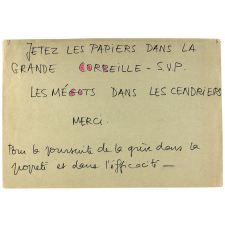 JETEZ LES PAPIERS DANS LA
GRANDE CORBEILLE - S.V.P.
LES MÉGOTS DANS LES CENDRIERS
MERCI.
Pour la poursuite de la grève dans la
propreté et dans l'efficacité —